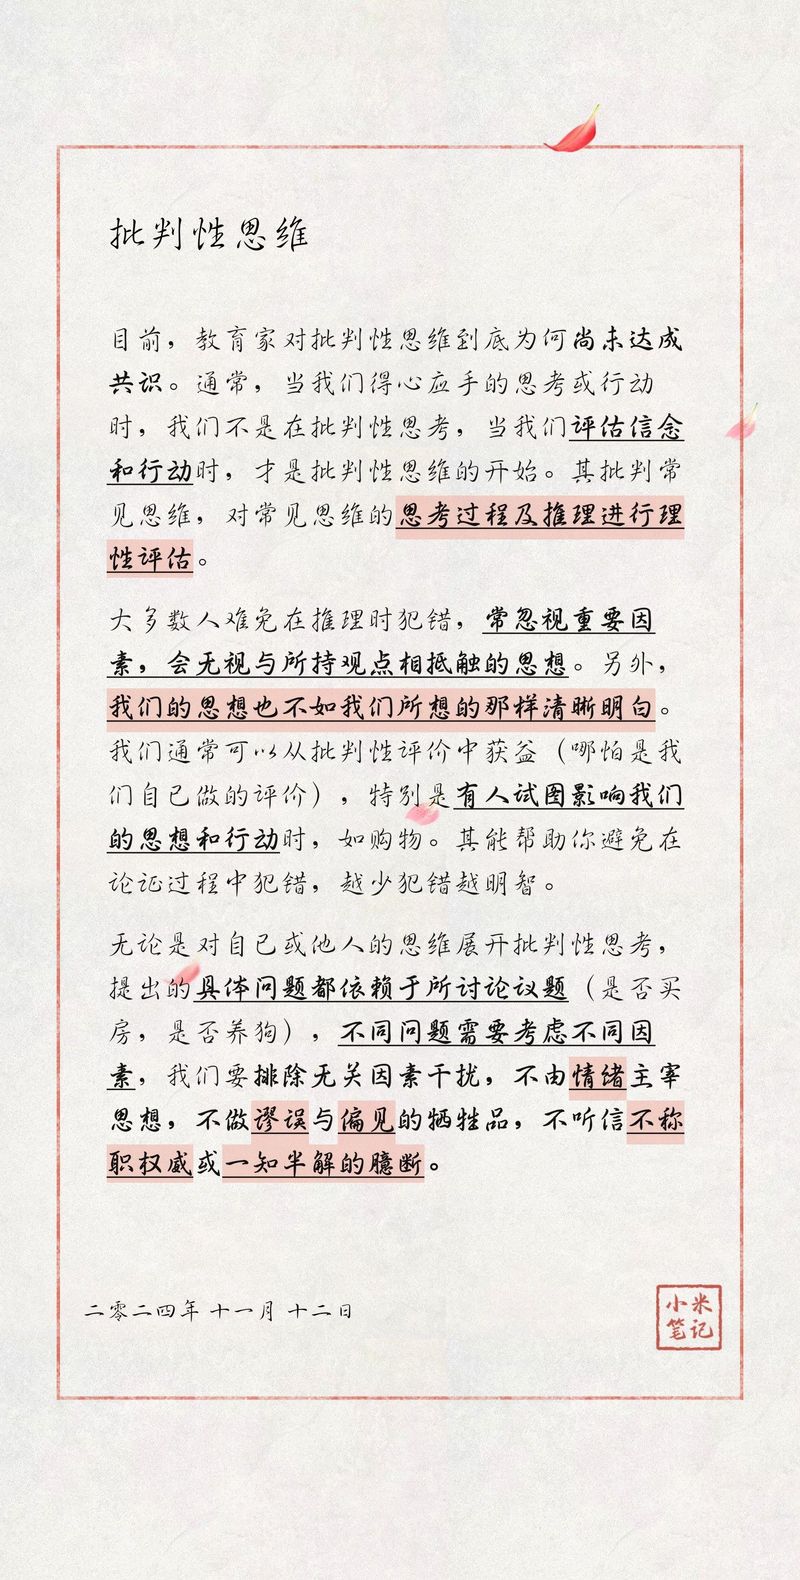 批判性思维
目前，教育家对批判性思维到底为何尚未达成
共识。通常，当我们得心应手的思考或行动
时，我们不是在批判性思考，当我们评估信念
和行动时，才是批判性思维的开始。其批判常
见思维，对常见思维的思考过程及推理进行理
性评估。
大多数人难免在推理时犯错，常忽视重要因
素，会无视与所持观点相抵触的思想。另外，
我们的思想也不如我们所想的那样清晰明白。
我们通常可以从批判性评价中获益（哪怕是我
们自己做的评价），特别是有人试图影响我们
的思想和行动时，如购物。其能帮助你避免在
论证过程中犯错，越少犯错越明智。
无论是对自己或他人的思维展开批判性思考，
提出的具体问题都依赖于所讨论议题（是否买
房，是否养狗），不同问题需要考虑不同因
素，我们要排除无关因素干扰，不由情绪主宰
思想，不做谬误与偏见的牺牲品，不听信不称
职权威或一知半解的臆断。
二零二四年 十一月 十二日
小米
笔记